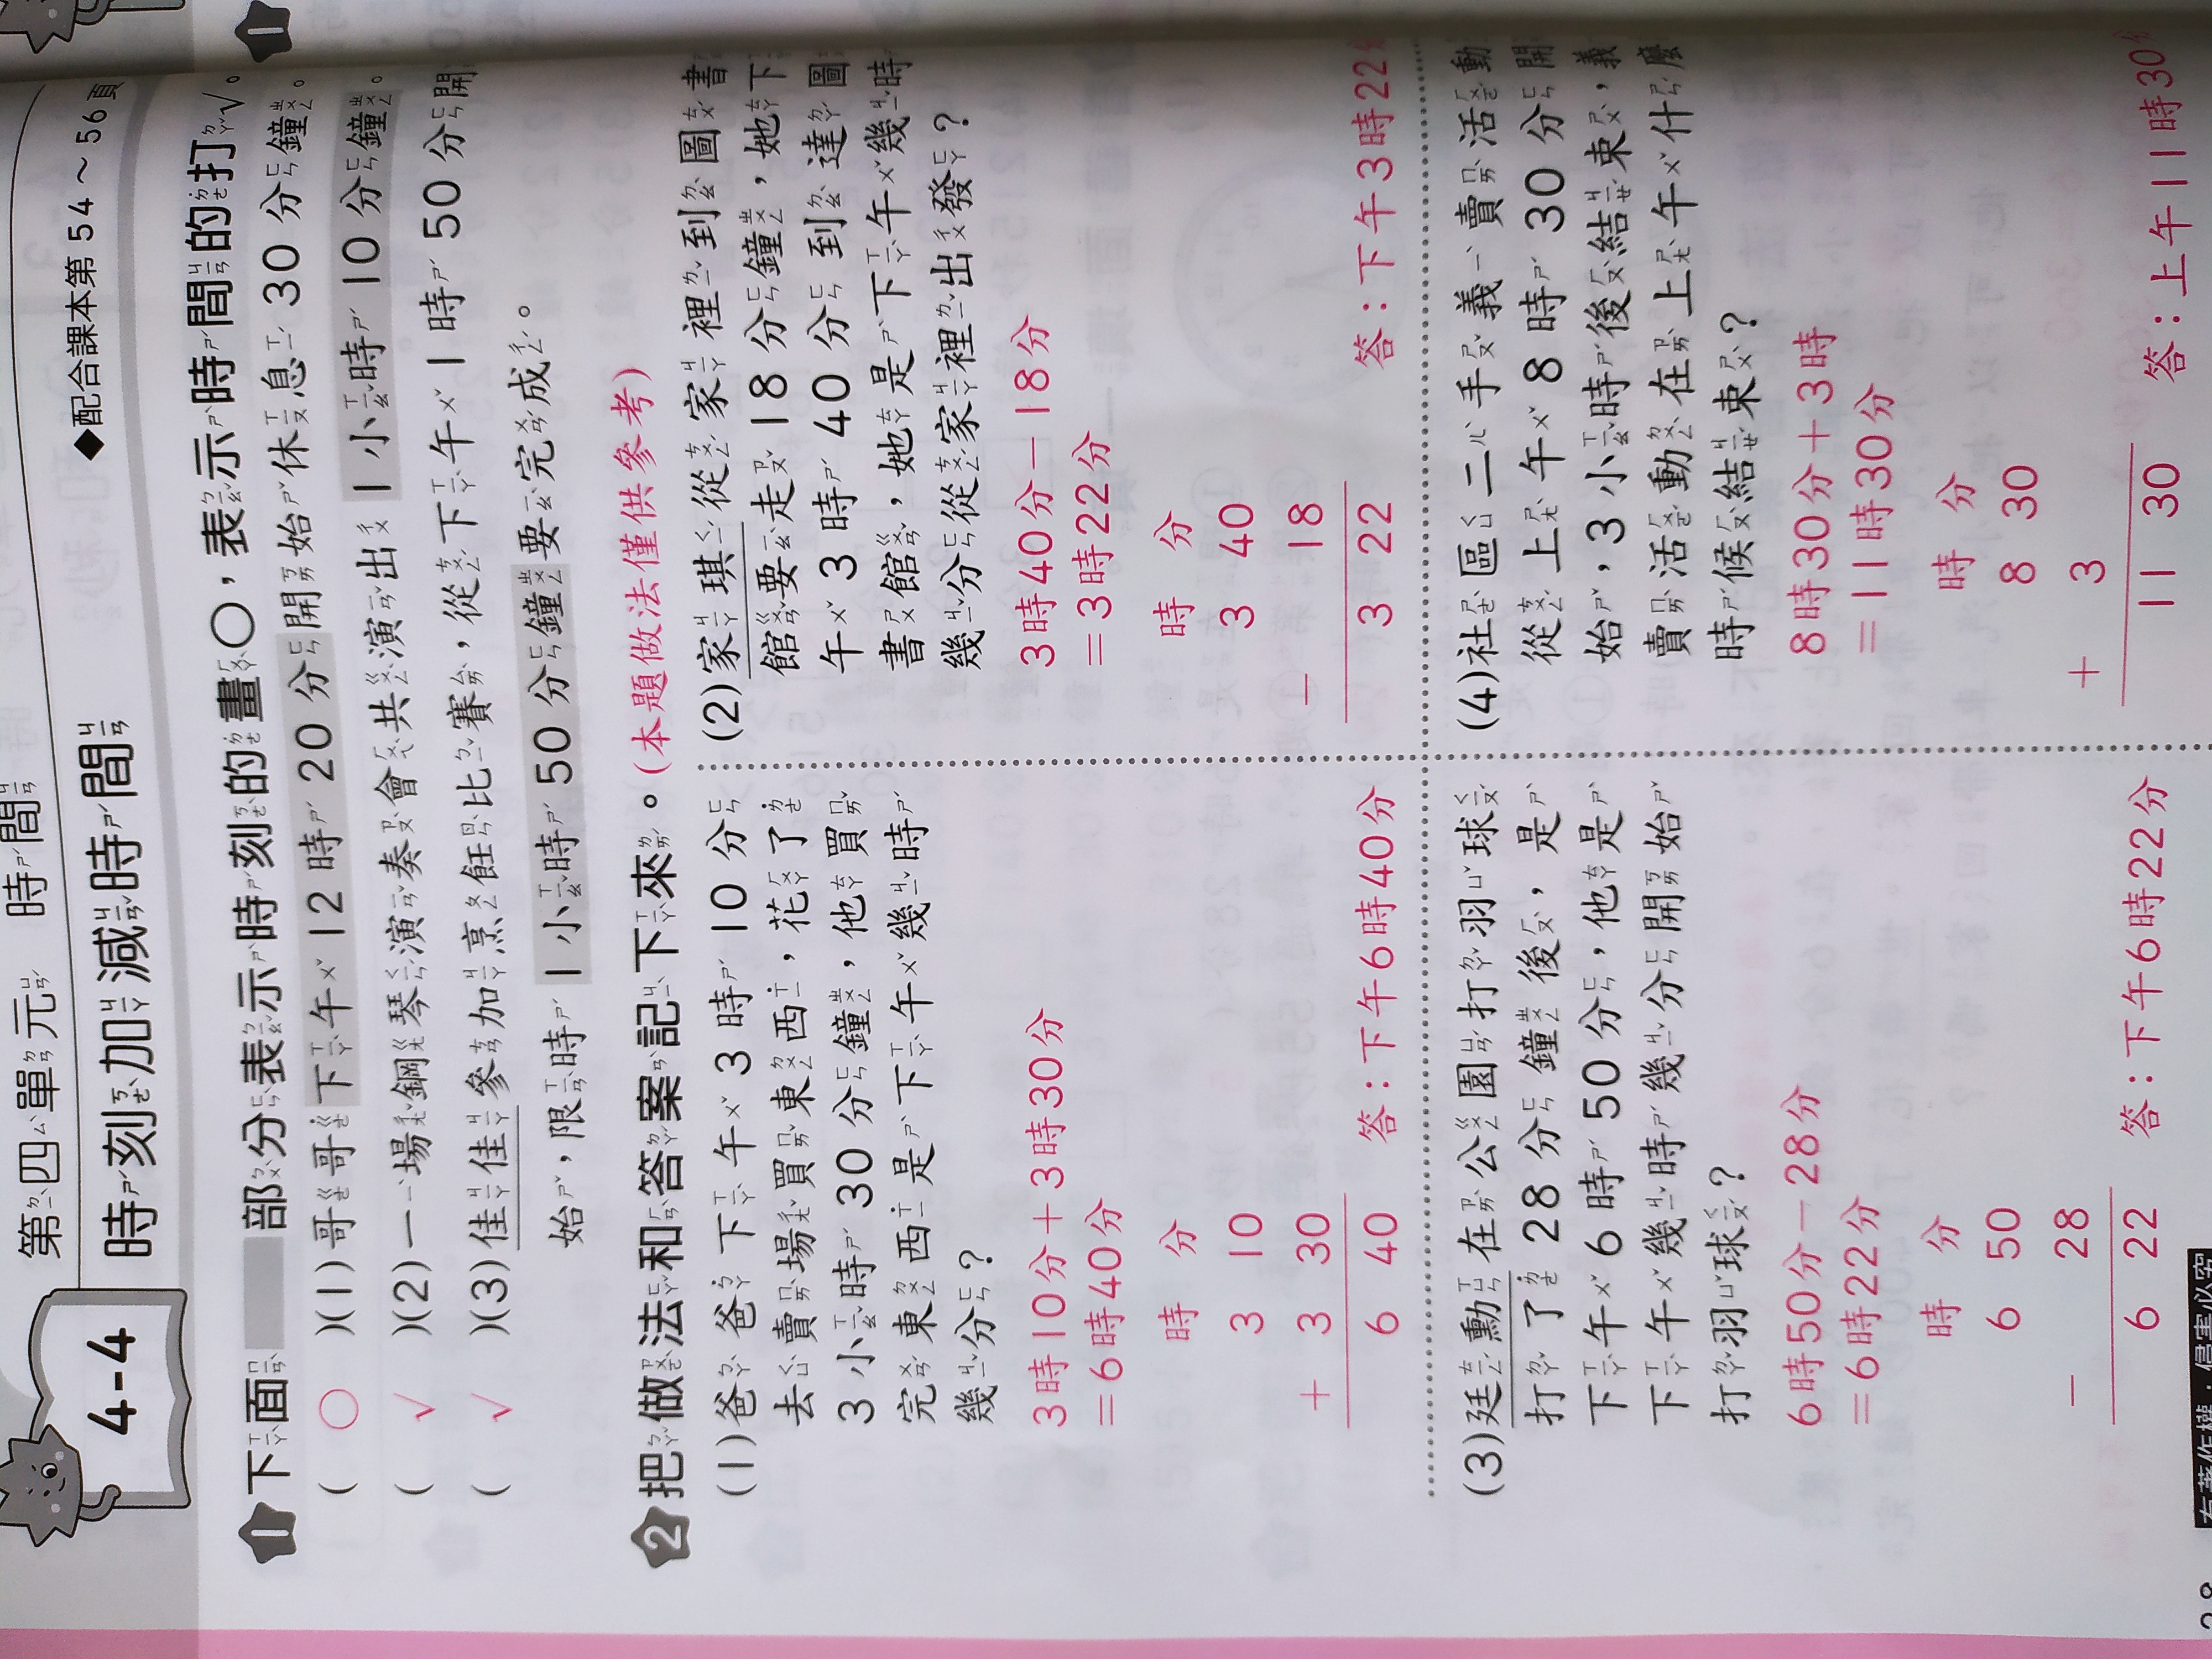 第四單元 時間
4-4
時刻加減時間
◆配合課本第54～56頁
1 下面 部分表示時刻的畫○，表示時間的打√。
( ○ )(1)哥哥下午12時20分開始休息30分鐘。
( √ )(2)一場鋼琴演奏會共演出1小時10分鐘。
( √ )(3)佳佳參加烹飪比賽，從下午1時50分開
始，限時1小時50分鐘要完成。
2 把做法和答案記下來。(本題做法僅供參考)
(1)爸爸下午3時10分
去賣場買東西，花了
3小時30分鐘，他買
完東西是下午幾時
幾分？
3時10分＋3時30分
＝6時40分
時 分
3 10
＋ 3 30
6 40
答：下午6時40分
(2)家琪從家裡到圖書
館要走18分鐘，她下
午3時40分到達圖
書館，她是下午幾時
幾分從家裡出發？
3時40分－18分
＝3時22分
時 分
3 40
－ 18
3 22
答：下午3時22
(3)廷勳在公園打羽球
打了28分鐘後，是
下午6時50分，他是
下午幾時幾分開始
打羽球？
6時50分－28分
＝6時22分
時 分
6 50
－ 28
6 22
答：下午6時22分
(4)社區二手義賣活動
從上午8時30分開
始，3小時後結束，義
賣活動在上午什麼
時候結束？
8時30分＋3時
＝11時30分
時 分
8 30
＋ 3
11 30
答：上午11時30